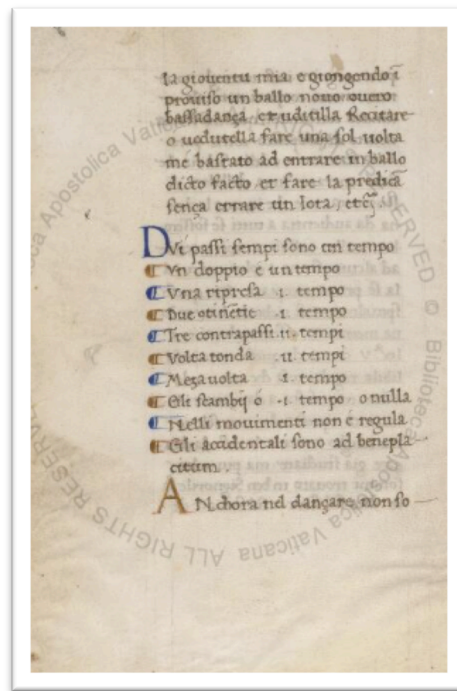 la gioventu mia e giongendo ĩ
proviso un ballo novo overo
bassadança et uditilla Recitare
o vedutella fare una sol volta
me bastato ad entrare in ballo
dicto facto et fare la predicã
sença errare un Iota, etc̃.
DVi passi sempi sono un tempo
Vn doppio e un tempo
Vna ripresa .1. tempo
Due otinctie .1. tempo
Tre contrapassi .11. tempi
Volta tonda .11. tempi
Meza volta .1. tempo
Gli scambij ó .1. tempo o nulla
Nelli movimenti non é regula
Gli accidentali sono ad benepla
citum.
ANchora nel dançare non so
Biblioteca Apostolica Vaticana ALL RIGHTS RESERVED ©